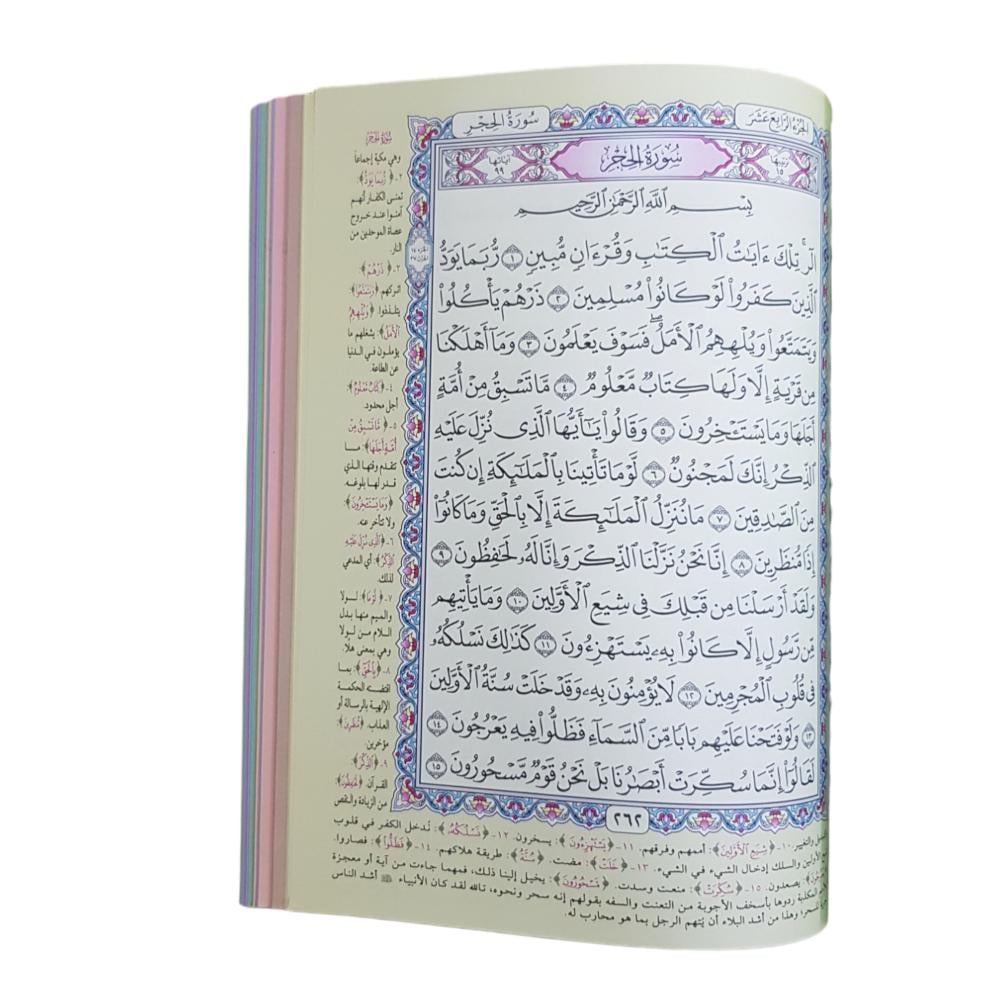 الجزء الرابع عشر
سورة الحجر
ترتيبها ١٥
سُورَةُ الحِجْرِ
آياتها ٩٩
بِسْمِ اللَّهِ الرَّحْمَٰنِ الرَّحِيمِ
الٓر ۚ تِلْكَ ءَايَٰتُ ٱلْكِتَٰبِ وَقُرْءَانٍ مُّبِينٍ ١ رُّبَمَا يَوَدُّ
ٱلَّذِينَ كَفَرُوا۟ لَوْ كَانُوا۟ مُسْلِمِينَ ٢ ذَرْهُمْ يَأْكُلُوا۟
وَيَتَمَتَّعُوا۟ وَيُلْهِهِمُ ٱلْأَمَلُ ۖ فَسَوْفَ يَعْلَمُونَ ٣ وَمَآ أَهْلَكْنَا
مِن قَرْيَةٍ إِلَّا وَلَهَا كِتَابٌ مَّعْلُومٌ ٤ مَّا تَسْبِقُ مِنْ أُمَّةٍ
أَجَلَهَا وَمَا يَسْتَـْٔخِرُونَ ٥ وَقَالُوا۟ يَٰٓأَيُّهَا ٱلَّذِى نُزِّلَ عَلَيْهِ
ٱلذِّكْرُ إِنَّكَ لَمَجْنُونٌ ٦ لَّوْ مَا تَأْتِينَا بِٱلْمَلَٰٓئِكَةِ إِن كُنتَ
مِنَ ٱلصَّٰدِقِينَ ٧ مَا نُنَزِّلُ ٱلْمَلَٰٓئِكَةَ إِلَّا بِٱلْحَقِّ وَمَا كَانُوٓا۟
إِذًا مُّنظَرِينَ ٨ إِنَّا نَحْنُ نَزَّلْنَا ٱلذِّكْرَ وَإِنَّا لَهُۥ لَحَٰفِظُونَ ٩
وَلَقَدْ أَرْسَلْنَا مِن قَبْلِكَ فِى شِيَعِ ٱلْأَوَّلِينَ ١٠ وَمَا يَأْتِيهِم
مِّن رَّسُولٍ إِلَّا كَانُوا۟ بِهِۦ يَسْتَهْزِءُونَ ١١ كَذَٰلِكَ نَسْلُكُهُۥ
فِى قُلُوبِ ٱلْمُجْرِمِينَ ١٢ لَا يُؤْمِنُونَ بِهِۦ وَقَدْ خَلَتْ سُنَّةُ ٱلْأَوَّلِينَ
١٣ وَلَوْ فَتَحْنَا عَلَيْهِم بَابًا مِّنَ ٱلسَّمَآءِ فَظَلُّوا۟ فِيهِ يَعْرُجُونَ ١٤
لَقَالُوٓا۟ إِنَّمَا سُكِّرَتْ أَبْصَٰرُنَا بَلْ نَحْنُ قَوْمٌ مَّسْحُورُونَ ١٥
٢٦٢
سورة الحجر
وهي مكية إجماعاً
٢-﴿رُبَمَا يَوَدُّ﴾:
تمنى الكفار أنهم
آمنوا عند خروج
عصاة الموحدين من
النار.
٣-﴿ذَرْهُمْ﴾:
اتركهم ﴿وَيَتَمَتَّعُوا﴾:
يتلذذوا ﴿وَيُلْهِهِمُ
الْأَمَلُ﴾: يشغلهم ما
يؤملون في الدنيا
عن الطاعة.
٤-﴿كِتَابٌ مَعْلُومٌ﴾:
أجل محدود.
٥-﴿مَا تَسْبِقُ مِنْ
أُمَّةٍ أَجَلَهَا﴾: ما
تتقدم وقتها الذي
قدر لها بلوغه.
﴿وَمَا يَسْتَـْٔخِرُونَ﴾:
ولا تتأخر عنه.
٦-﴿الَّذِي نُزِّلَ عَلَيْهِ
الذِّكْرُ﴾: أي المدعي
لذلك.
٧-﴿لَوْمَا﴾: لولا
والميم منها بدل
اللام من لولا
وهي بمعنى هلا.
٨-﴿بِالْحَقِّ﴾: بما
اقتضته الحكمة
الإلهية بالرسالة أو
العذاب. ﴿مُنْظَرِينَ﴾:
مؤخرين.
٩-﴿الذِّكْرَ﴾:
القرآن. ﴿لَحَافِظُونَ﴾:
من الزيادة والنقص
والتغيير. ١٠-﴿شِيَعِ الْأَوَّلِينَ﴾: أممهم وفرقهم. ١١-﴿يَسْتَهْزِءُونَ﴾: يسخرون. ١٢-﴿نَسْلُكُهُ﴾: ندخل الكفر في قلوب
الأولين والسلك إدخال الشيء في الشيء. ١٣-﴿خَلَتْ﴾: مضت. ﴿سُنَّةُ﴾: طريقة هلاكهم. ١٤-﴿فَظَلُّوا﴾: فصاروا.
يصعدون. ١٥-﴿سُكِّرَتْ﴾: منعت وسدت. ﴿مَسْحُورُونَ﴾: يخيل إلينا ذلك، فمهما جاءت من آية أو معجزة
المكذبة ردوها بأسخف الأجوبة من التعنت والسفه بقولهم إنه سحر ونحوه، تالله لقد كان الأنبياء ﷺ أشد الناس
وهذا من أشد البلاء أن يُتهم الرجل بما هو محارب له.